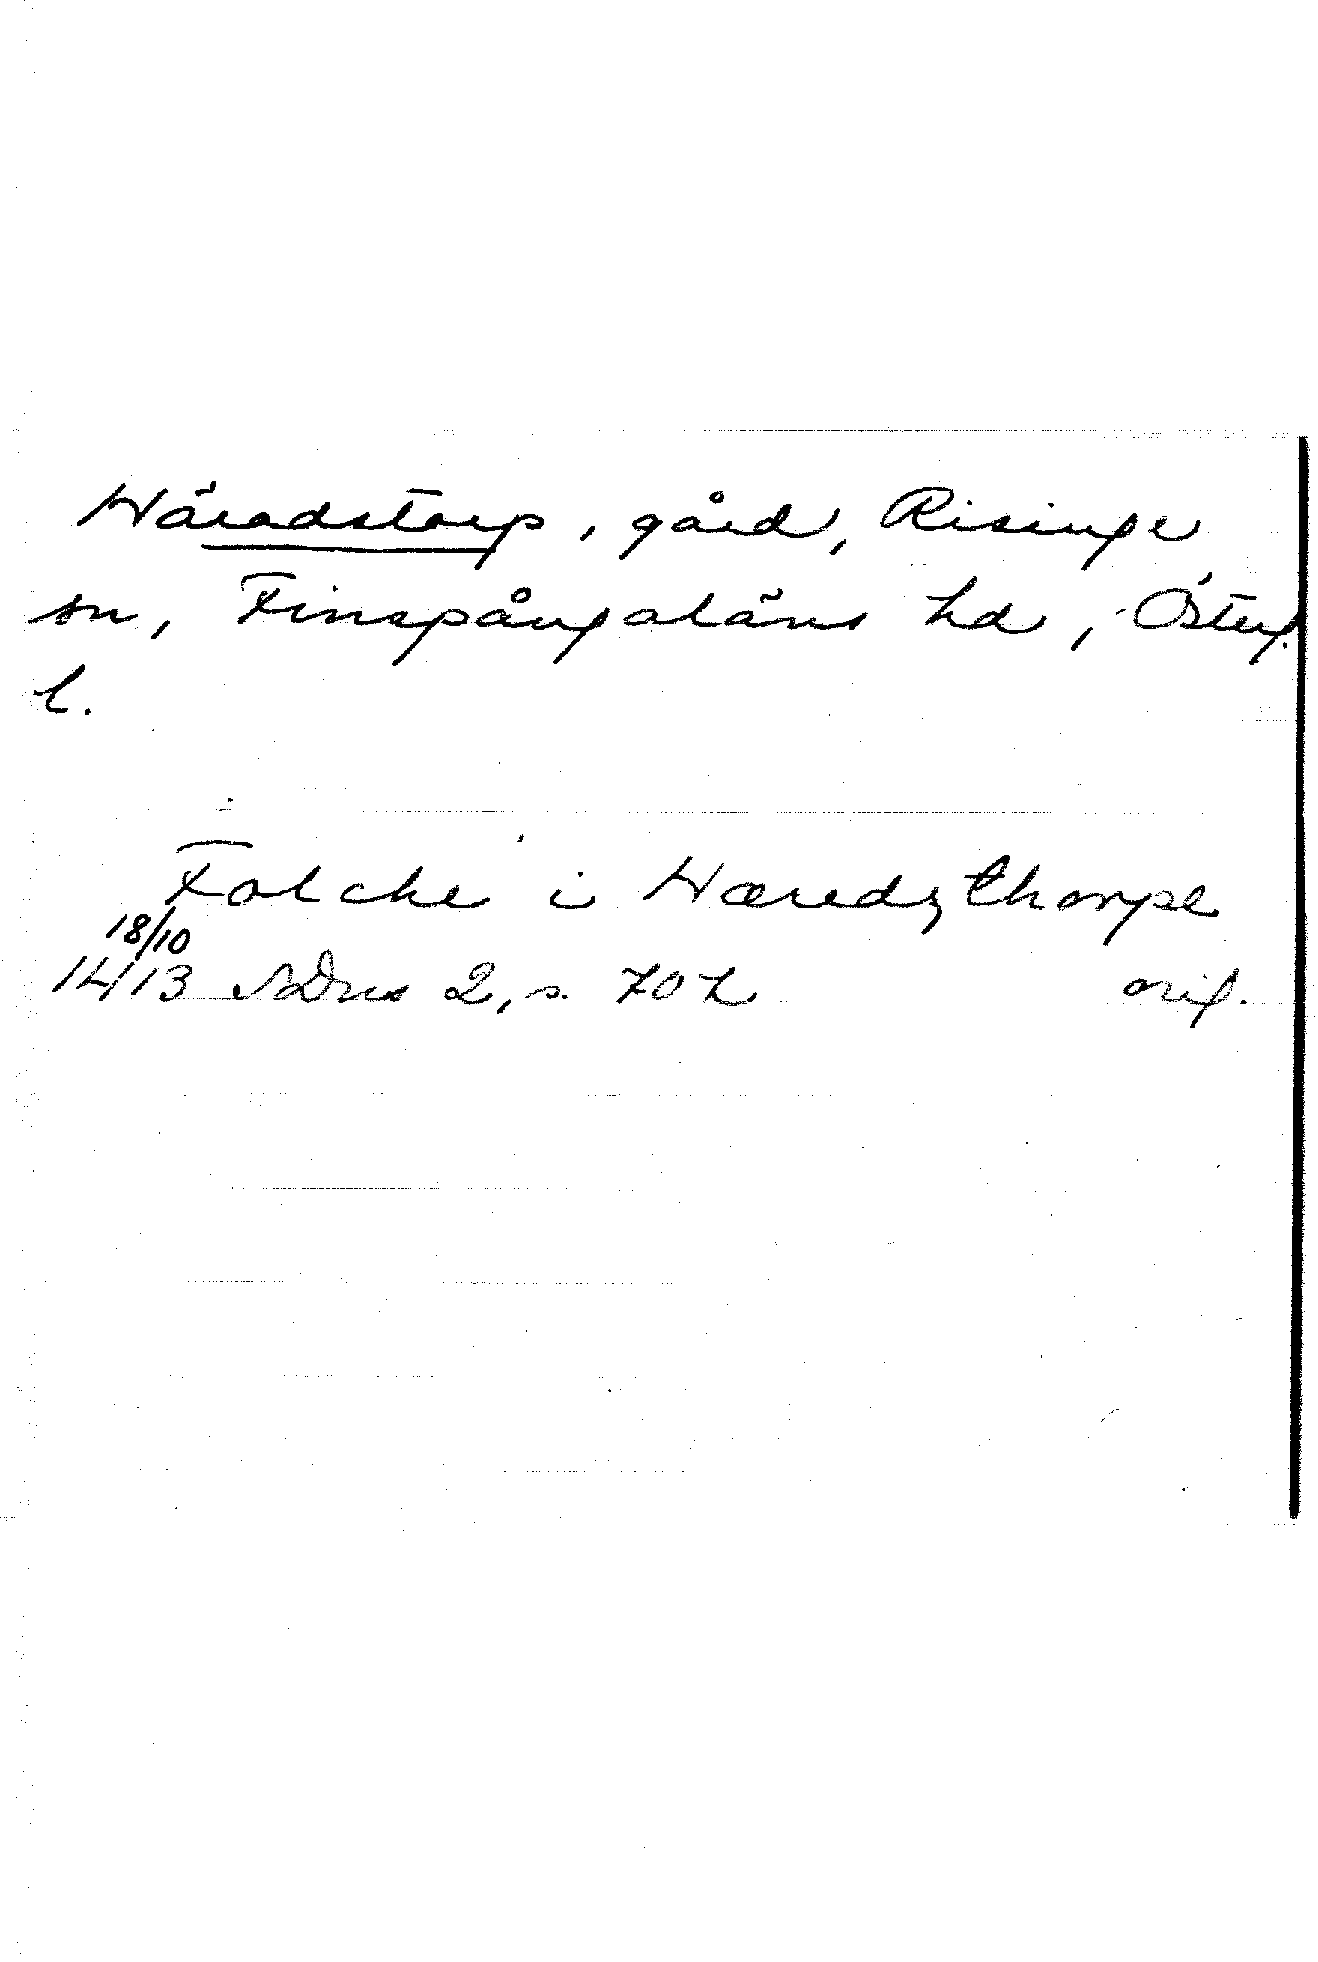 Häradstorp, gård, Risinge
sn, Finspångaläns hd, Österg.
l.
Folche i Hæredzthorpe
18/10
14/13 SDns 2, s. 702 orig.